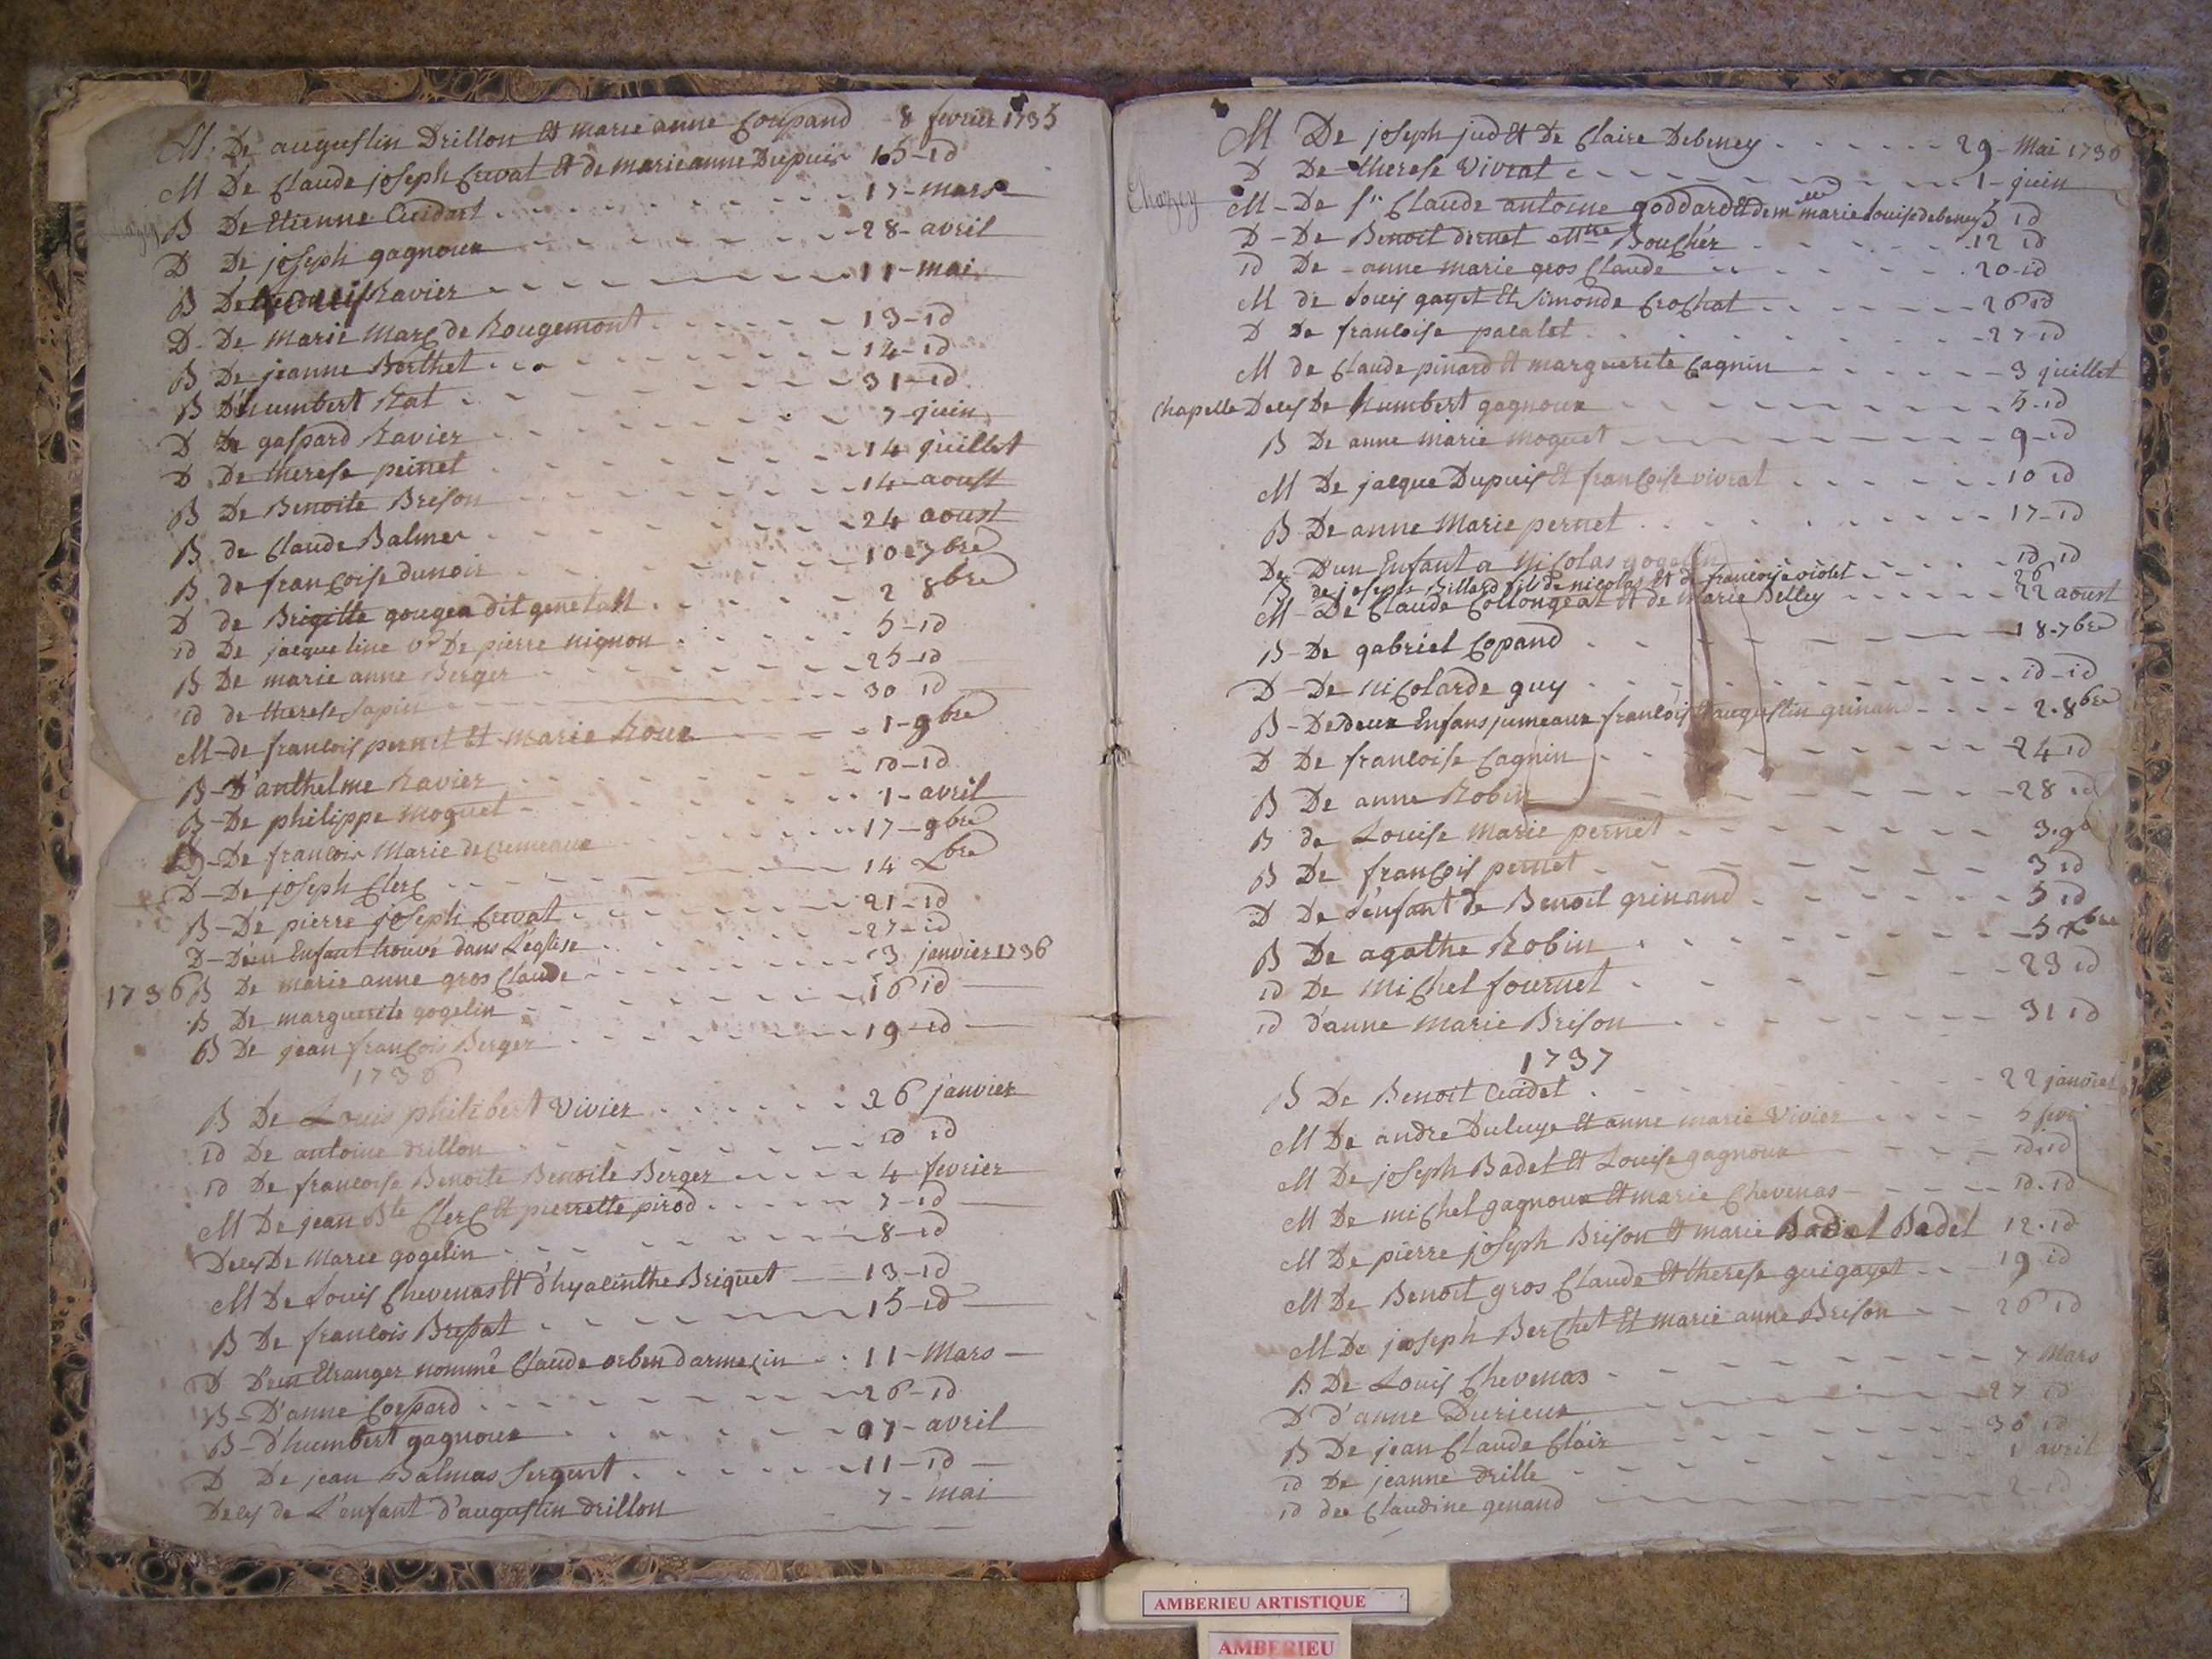 M. De augustin Drillon Et marie anne Coupand 8 fevrier 1735
M De Claude joseph Cuvat Et de marie anne Dupuis 15-id
B De Etienne Cuidart 17-mars
D De joseph gagnoux 28-avril
B De Louis Ravier 11-mai
D- De Marie Marc de Rougemont 13-id
B De jeanne Berthet 14-id
B D'humbert Rat 31-id
D De gaspard Ravier 7-juin
D De therese peinet 14 juillet
B De Benoite Brison 14-aoust
B de Claude Balmer 24 aoust
B de francoise dunoir 10-7bre
D de Brigitte gougea dit 2 8bre
id De jacqueline ve De pierre nignon 5-id
B De marie anne Berger 25-id
id de therese Sapin 30 id
M-de francois pernet Et marie Roux 1-9bre
B-D'anthelme Ravier id-id
B-De philippe moguet 1-avril
D-De francois Marie de cremeaux 17-9bre
D-De joseph Clerc 14 Xbre
B-De pierre joseph Cuvat 21-id
D-D'un Enfant trouvé dans L'église 27-id
1736 B De marie anne gros Claude 3 janvier 1736
B De marguerite gogelin 16 id
B De jean francois Berger 19-id
1736
B De Louis philibert Vivier 26 janvier
id De antoine drillon id id
id De francoise Benoite Benoite Berger 4 fevrier
M De jean Bte Clerc Et pierrette pirod 7-id
Decy De Marie gogelin 8-id
M De Louis Chevenas Et d'hyacinthe Briquet 13-id
B De francois Bressat 15-id
D D'un Etranger nommé Claude orben darmezin 11-Mars
B-D'anne Coepard 26-id
B-d'humbert gagnoux 07-avril
D De jean Balmas Sergent 11-id
Decy de L'enfant d'augustin drillon 7-mai
Chazey
M De joseph jud Et De Claire Debeney 29-Mai 1736
D De therese Vivrat 1-juin
Chazey
M-De Sr Claude antoine goddard Et de melle marie Louise debeney 5 id
D-De Benoit drouet Boucher 12 id
id De anne marie gros Claude 20-id
M de Louis gayet Et Simonde Crochat 26 id
D De francoise pacalet 27-id
M de Claude pinard Et marguerite Cagnin 3 juillet
Chapelle Decy De humbert gagnoux 5-id
B De anne Marie moguet 9-id
M De jacque Dupuis Et francoise vivrat 10 id
B De anne Marie pernet 17-id
De D'un Enfant a Nicolas gogelin id id
B de joseph Billard fils de nicolas Et de francoise violet 26
M-De Claude Collongeat Et de Marie Belley 22 aoust
B-De gabriel Copand 18-7bre
D-De Nicolarde guy id-id
B-De deux Enfans jumeaux francois Et augustin grinand 2.8bre
D De francoise Cagnin 24 id
B De anne Robin 28 id
B de Louise Marie pernet 3.9b
B De francois pernet 3 id
D De L'enfant de Benoit grinand 5 id
B De agathe Robin 5 Xbre
id De Michel fournet 23 id
id d'anne Marie Brison 31 id
1737
B De Benoit Cuidet 22 janvier
M De andre Duluye Et anne marie Vivier 5 fevr
M De joseph Badet Et Louise gagnoux id.id
M De michel gagnoux Et marie Chevenas id.id
M De pierre joseph Brison Et marie Badet Badet 12.id
M De Benoit gros Claude Et therese guigayet 19 id
M De joseph Berchet Et marie anne Brison 26 id
B De Louis Chevenas 7 Mars
D d'anne Durieux 27 id
B De jean Claude Clair 30 id
id De jeanne drille 1 avril
id de Claudine genand 2-id
AMBERIEU ARTISTIQUE
AMBERIEU